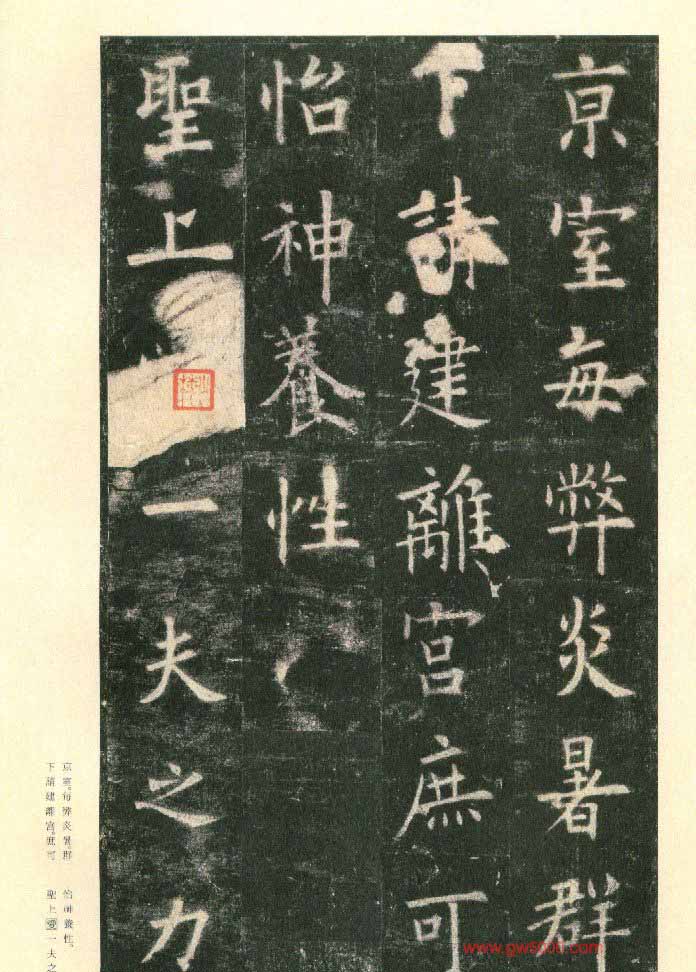 京室每弊炎暑群
下請建離宮庶可
怡神養性
聖上一夫之力
京室。每弊炎暑。群
下請建離宮。庶可
怡神養性。
聖上愛一夫之